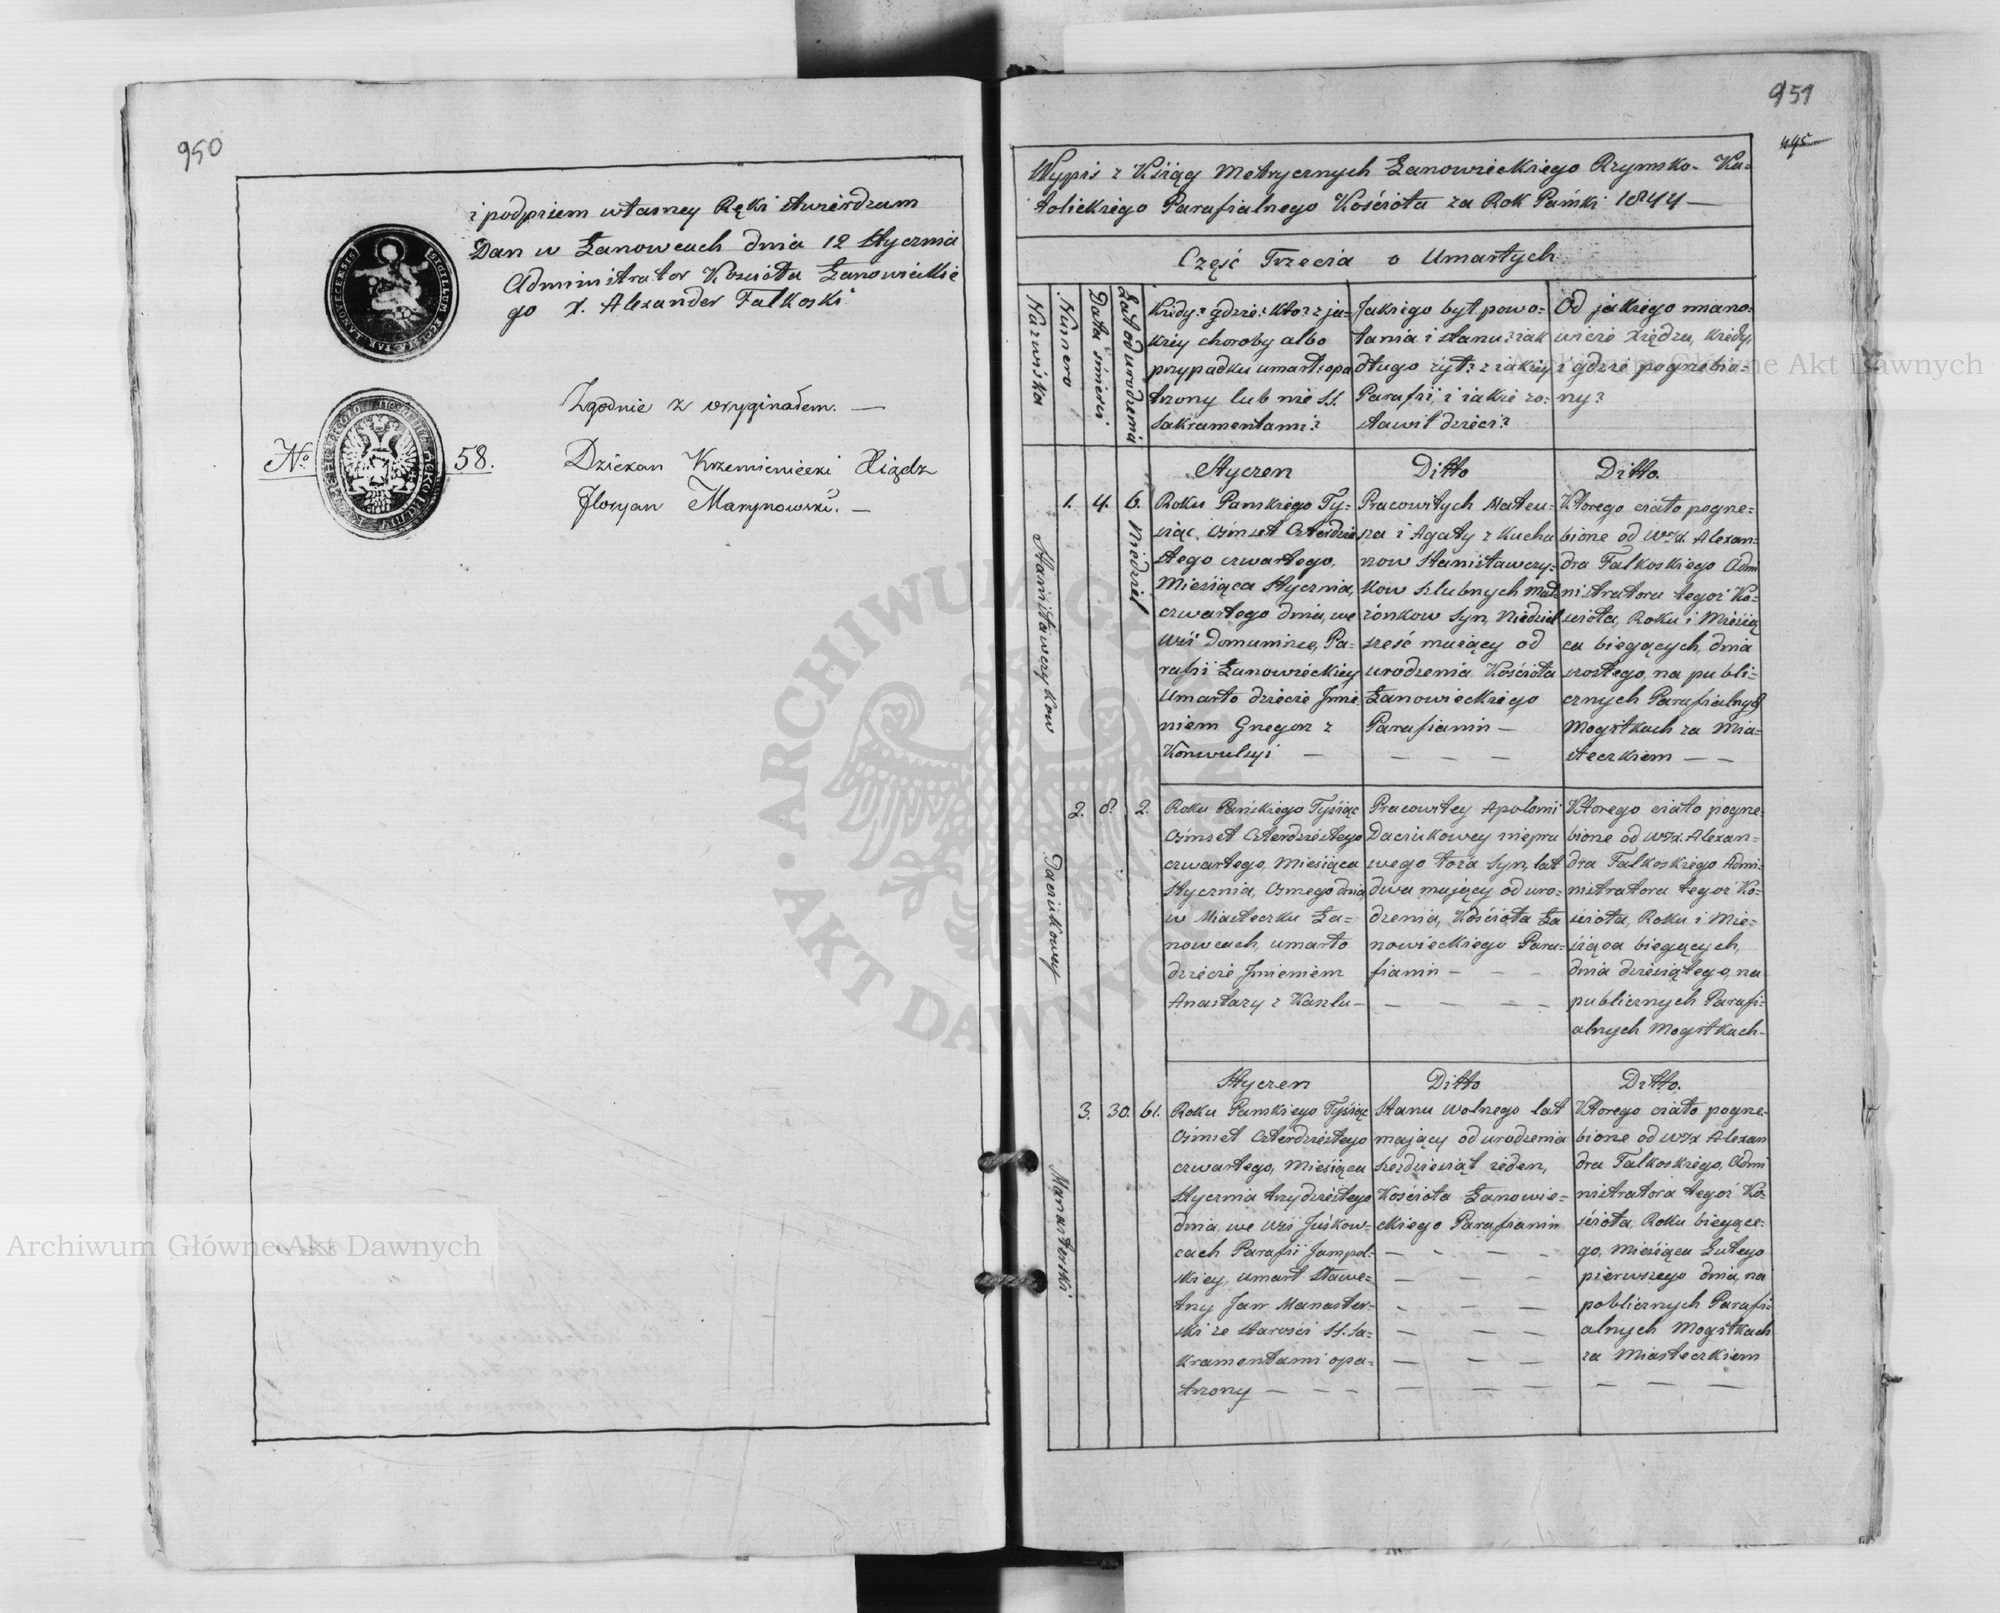 950
i podpisem własney Ręki stwierdzam
Dan w Łanowcach dnia 12 Stycznia
Administrator Kościoła Łanowieckie
go X. Alexander Falkoski
Zgodnie z oryginałem. —
No 58.
Dziekan Krzemieniecki Xiądz
Floryan Marynowski. —
951
495
Wypis z Ksiąg Metrycznych Łanowieckiego Rzymsko- Ka-
tolickiego Parafialnego Kościoła za Rok Pański 1844 —
Część Trzecia o Umarłych
Nazwiska
Numero
Data śmierci
Lat od urodzenia
Kiedy? gdzie? kto? z ja-
kiey choroby albo
przypadku umarł? opa
trzony lub nie SS.
Sakramentami?
Jakiego był powo-
łania i stanu? iak
długo żył? z iakiey
Parafii i iakie zo-
stawił dzieci?
Od jakiego miano-
wicie Xiędza, kiedy,
i gdzie pogrzebio-
ny?
Stanisławczykow
1.
4.
6. Niedziel
Styczen
Roku Panskiego Ty-
siąc, Osmset Czterdzie
stego czwartego,
Miesiąca Stycznia,
czwartego dnia, we
Wsi Domanince, Pa-
rafii Łanowieckiey
Umarło dziecie Imie
niem Gregorz z
Konwulsyi —
Ditto
Pracowitych Mateu-
sza i Agaty z Kucha
rzow Stanisławczy-
kow Slubnych Mał-
żonkow Syn, Niedziel
sześć maiący od
urodzenia, Kościoła
Łanowieckiego
Parafianin —
— — —
Ditto.
Ktorego ciało pogrze-
bione od W. X. Alexan-
dra Falkoskiego Admi
nistratora tegoż Ko-
ścioła, Roku i Miesią
ca biegących, dnia
szostego, na publi-
cznych Parafialnych
Mogiłkach za Mia-
steczkiem — —
Daciukowey
2.
8.
2.
Roku Pańskiego Tysiąc
Osmset Czterdziestego
czwartego, Miesiąca
Stycznia, Osmego dnia,
w Miasteczku Ła-
nowcach, umarło
dziecie Imieniem
Anastazy z Kaszlu —
Pracowitey Apolonii
Daciukowey niepra
wego łoża Syn, lat
dwa mający od uro-
dzenia, Kościoła Ła
nowieckiego Para-
fianin — — —
— — — —
Ktorego ciało pogrze-
bione od W. X. Alexan-
dra Falkoskiego Admi-
nistratora tegoż Ko-
ścioła, Roku i Mie-
siąca biegących,
dnia dziesiątego, na
publicznych Parafi-
alnych Mogiłkach —
Manasterski
3.
30.
61.
Styczen
Roku Panskiego Tysiąc
Osmset Czterdziestego
czwartego, Miesiąca
Stycznia trzydziestego
dnia, we Wsi Juskow-
cach Parafii Jampol-
skiey, umarł Sławe-
tny Jan Manaster-
ski ze starości SS. Sa-
kramentami opa-
trzony — — —
Ditto
Stanu wolnego lat
mający od urodzenia
szezdziesiąt ieden,
Kościoła Łanowie-
ckiego Parafianin
— — — —
Ditto.
Ktorego ciało pogrze-
bione od W. X. Alexan
dra Falkoskiego, Admi
nistratora tegoż Ko-
ścioła, Roku biegące-
go, Miesiąca Lutego
pierwszego dnia, na
poblicznych Parafi-
alnych Mogiłkach
za Miasteczkiem
— — —
Archiwum Główne Akt Dawnych
Archiwum Główne Akt Dawnych